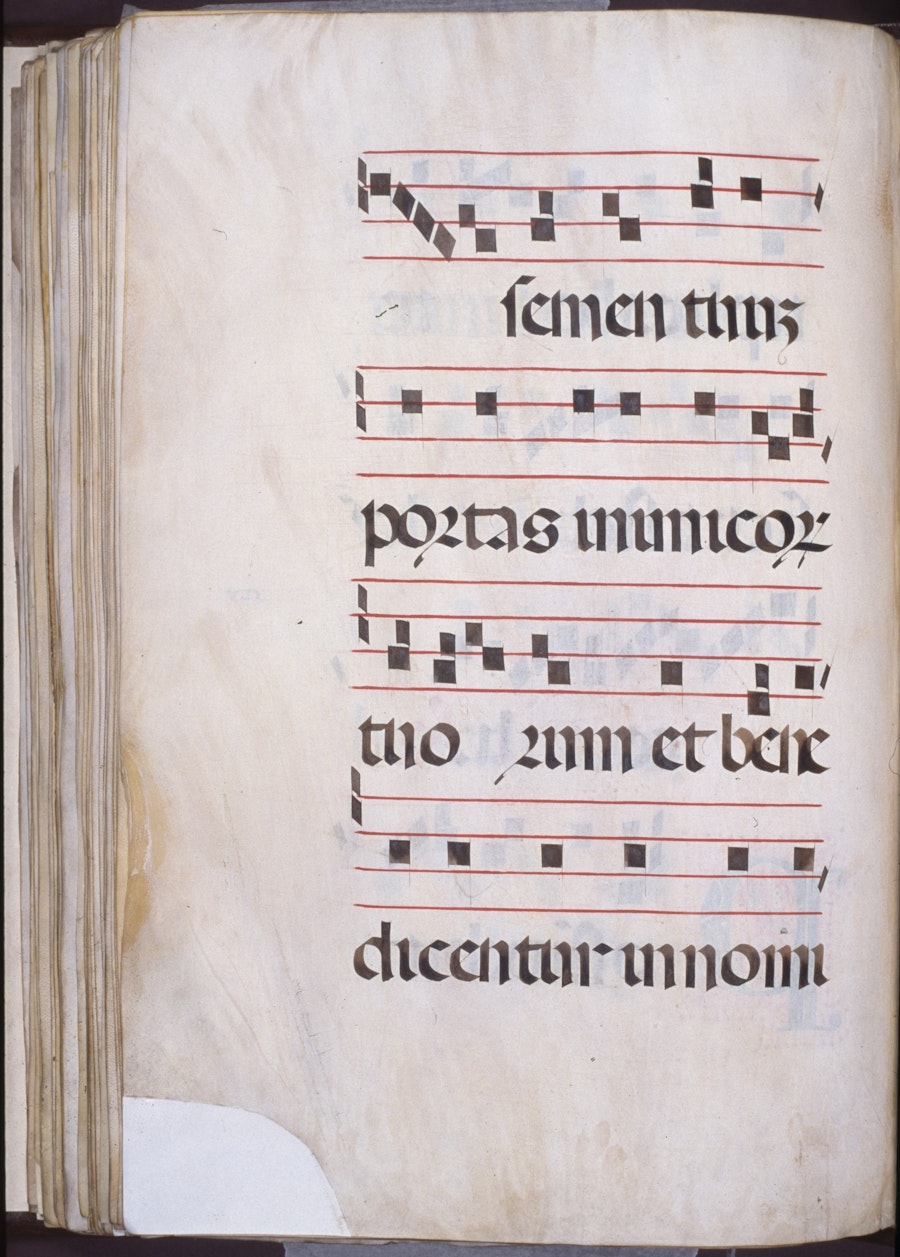 semen tuuꝫ
portas inimicoꝝ
tuo rum et bene
dicentur in nomi